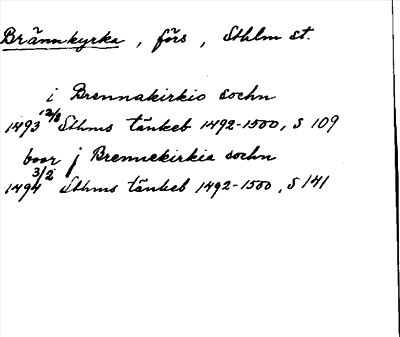 Brännkyrka, förs, Sthlm st.
i Brennakirkio sochn
1493 12/8 Sthms tänkeb 1492-1500, S 109
boor j Brennekirkia sochn
1494 3/2 Sthms tänkeb 1492-1500, S 141